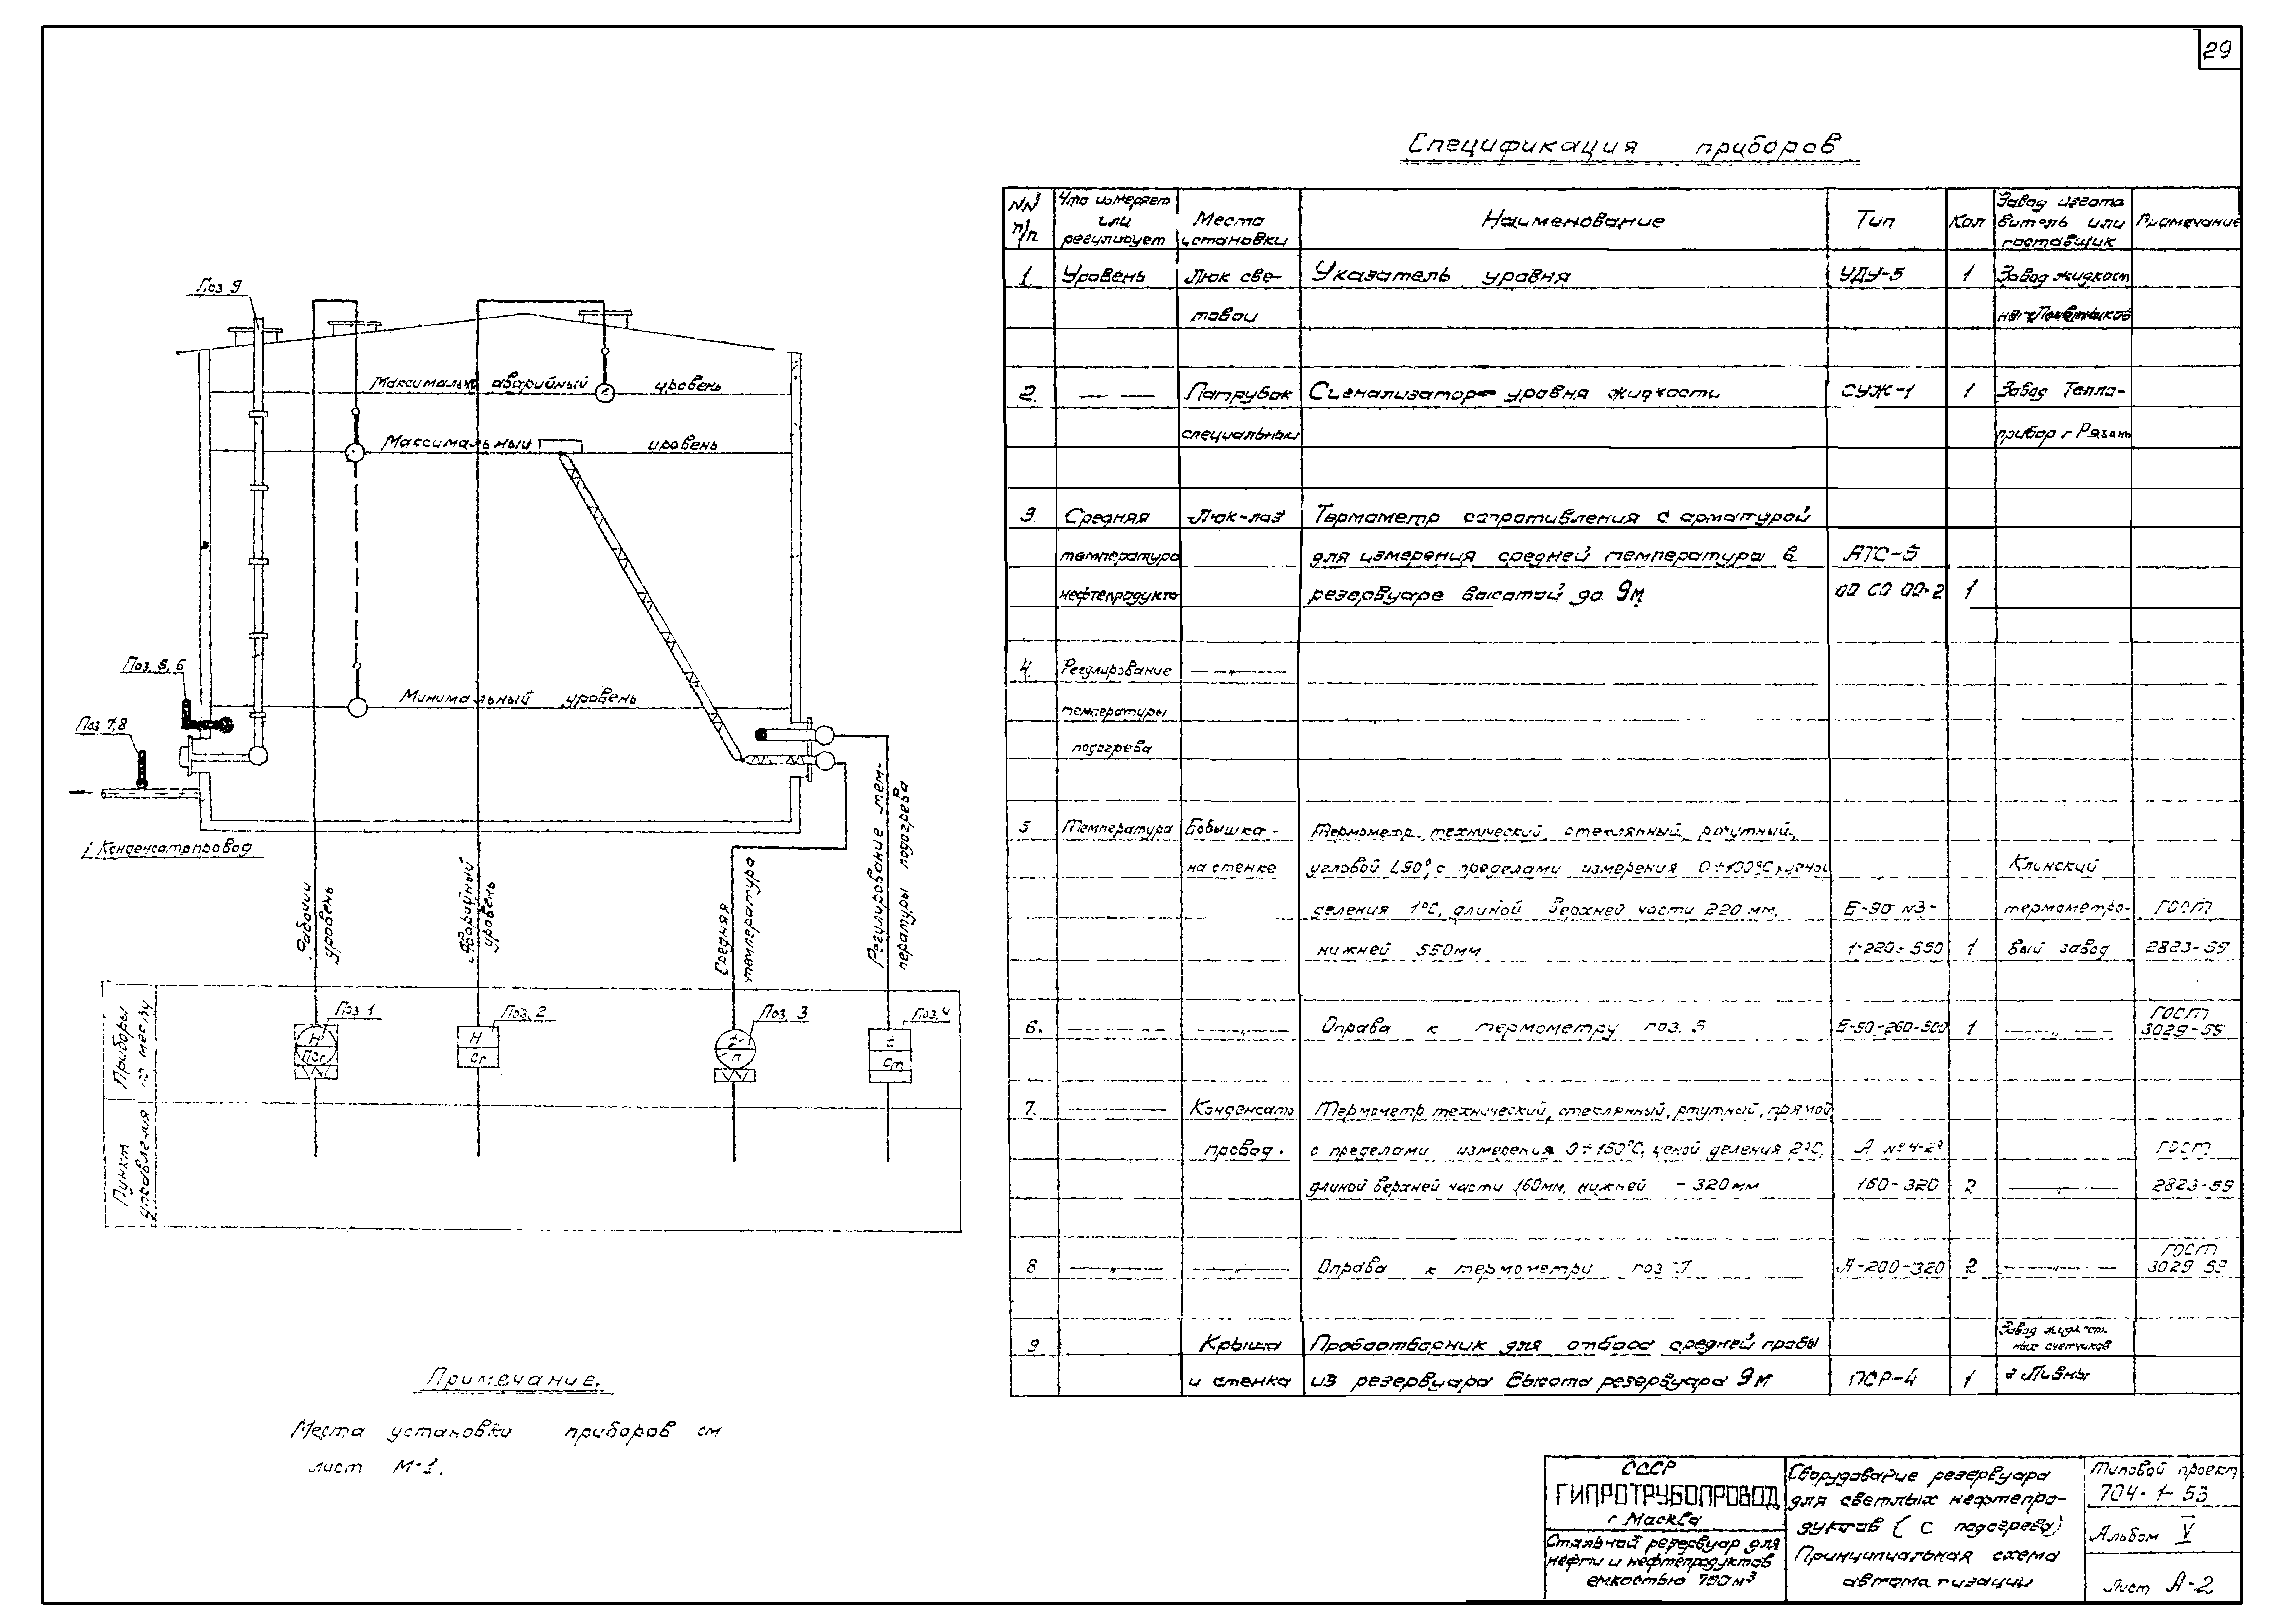 29
Спецификация приборов
NN п/п
Что измеряет или регулирует
Место установки
Наименование
Тип
Кол
Завод изгото витель или поставщик
Примечание
1. Уровень Люк све- Указатель уровня УДУ-5 1 Завод жидкост
товой
2. — — Патрубок Сигнализатор уровня жидкости СУЖ-1 1 Завод Тепло-
специальный прибор г Рязань
3. Средняя Люк-лаз Термометр сопротивления с арматурой
температура для измерения средней температуры в АТС-5
нефтепродукта резервуаре высотой до 9м 00 СО 00-2 1
4. Регулирование —„—
температуры
подогрева
5 Температура Бобышка- Термометр технический, стеклянный, ртутный,
на стенке угловой L90°, с пределами измерения 0÷100°С, ценой Клинский
деления 1°С, длиной верхней части 220 мм, Б-90 №3- термометро- ГОСТ
нижней 550мм 1-220-550 1 вый завод 2823-59
6. —„— —„— Оправа к термометру поз. 5 Б-90-260-500 1 —„— ГОСТ 3029-59
7. —„— Конденсато Термометр технический, стеклянный, ртутный, прямой
провод. с пределами измерения 0÷150°С, ценой деления 2°С, А №4-2° ГОСТ
длиной верхней части 160мм, нижней - 320мм 160-320 2 —„— 2823-59
8 —„— —„— Оправа к термометру поз 7 А-200-320 2 —„— ГОСТ 3029 59
9 Крыша Пробоотборник для отбора средней пробы Завод жидкост. ных счетчиков
и стенка из резервуара высота резервуара 9м ПСР-4 1 г Ливны
Поз 9
Максимально аварийный уровень
Максимальный уровень
Минимальный уровень
Поз. 5, 6
Поз 7,8
Конденсатопровод
Рабочий уровень
Аварийный уровень
Средняя температура
Регулирование тем-
пературы подогрева
Приборы по месту
Пункт управления
Поз 1
Н
Псг
Поз. 2
Н
Сг
Поз. 3
t°
П
Поз. 4
Ст
Примечание.
Места установки приборов см
лист М-1.
СССР
ГИПРОТРУБОПРОВОД
г Москва
Стальной резервуар для
нефти и нефтепродуктов
емкостью 700м³
Оборудование резервуара
для светлых нефтепро-
дуктов ( с подогрева)
Принципиальная схема
автоматизации
Типовой проект
704-1-53
Альбом V
Лист А-2